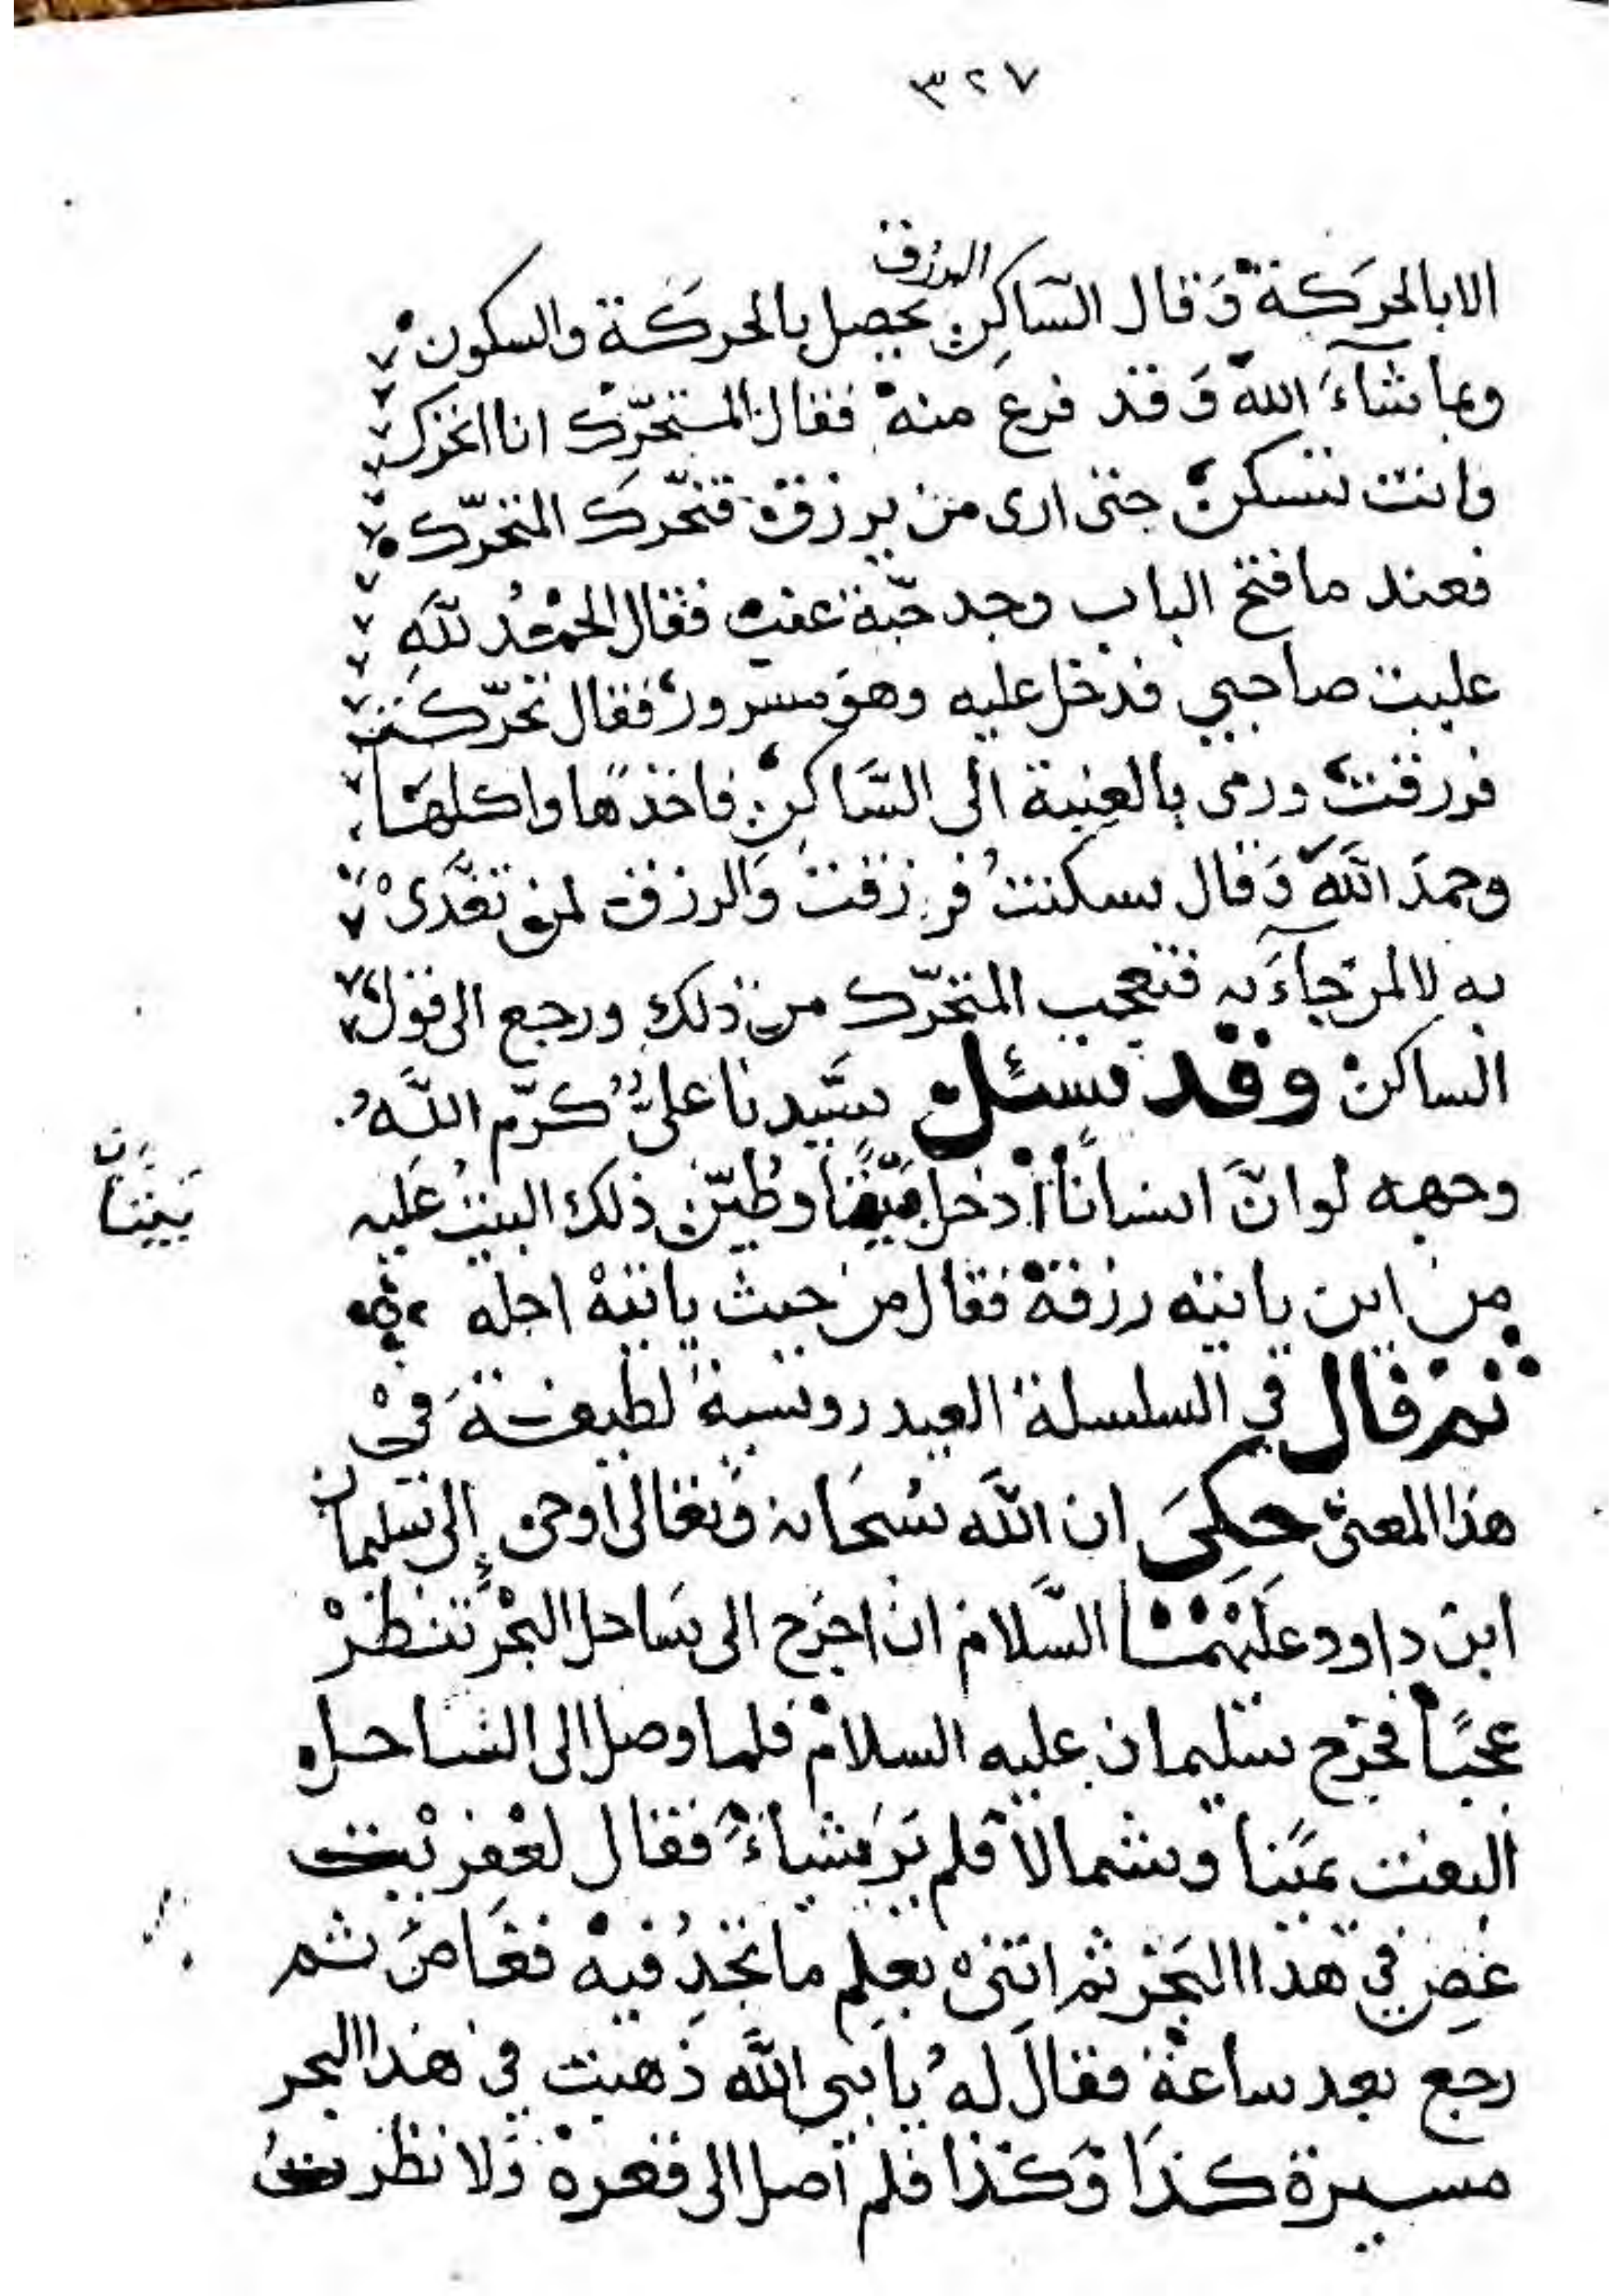 ٣٢٧
الا بالحركة وقال الساكن الرزق يحصل بالحركة والسكون
وبما شاء الله وقد فرغ منه فقال المتحرك انا اتحرك
وانت تسكن حتى ارى من يرزق فتحرك المتحرك
فعند ما فتح الباب وجد حبة عنب فقال الحمد لله
غلبت صاحبي فدخل عليه وهو مسرور فقال تحركت
فرزقت ورمى بالعنبة الى الساكن فاخذها واكلها
وحمد الله وقال سكنت فرزقت والرزق لمن تغدى
به لا لمن جاء به فتعجب المتحرك من ذلك ورجع الى قول
الساكن وقد سئل سيدنا علي كرم الله
وجهه لو ان انسانا ادخل بيتا وطين ذلك البيت عليه
بيان
بيتا
من اين ياتيه رزقه فقال من حيث ياتيه اجله
ثم قال في السلسلة العيدروسية لطيفة في
هذا المعنى حكي ان الله سبحانه وتعالى اوحى إلى سليمان
ابن داود عليهما السلام ان اخرج الى ساحل البحر تنظر
عجبا فخرج سليمان عليه السلام فلما وصل الى الساحل
التفت يمينا وشمالا فلم ير شياء فقال لعفريت
غص في هذا البحر ثم اتني بعلم ما تجد فيه فغاص ثم
رجع بعد ساعة فقال له يا نبي الله ذهبت في هذا البحر
مسيرة كذا وكذا فلم اصل الى قعره ولا نظرت